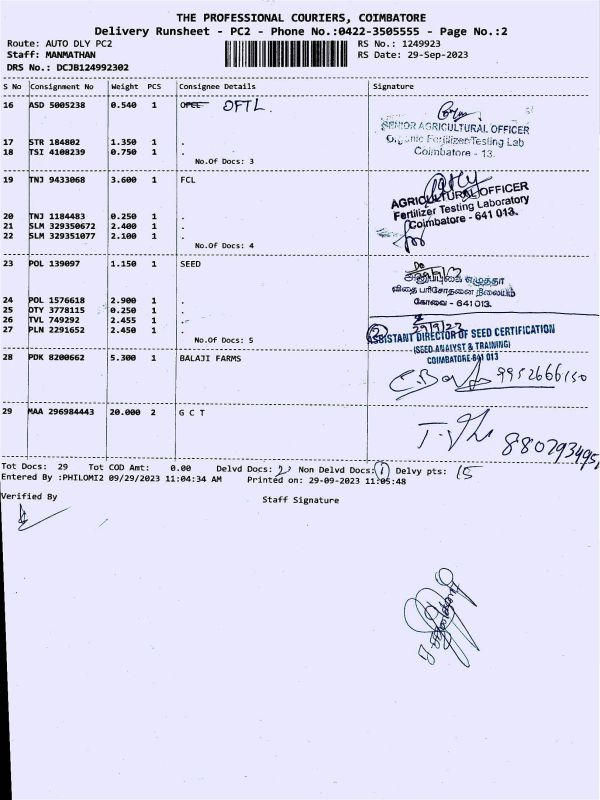 THE PROFESSIONAL COURIERS, COIMBATORE
Delivery Runsheet - PC2 - Phone No.:0422-3505555 - Page No.:2
Route: AUTO DLY PC2 RS No.: 1249923
Staff: MANMATHAN RS Date: 29-Sep-2023
DRS No.: DCJB124992302
S No Consignment No Weight PCS Consignee Details Signature
16 ASD 5005238 0.540 1 OFTL
SENIOR AGRICULTURAL OFFICER
Organic Fertilizer Testing Lab
Coimbatore - 13.
17 STR 184802 1.350 1 .
18 TSI 4108239 0.750 1 .
No.Of Docs: 3
19 TNJ 9433068 3.600 1 FCL
AGRICULTURAL OFFICER
Fertilizer Testing Laboratory
Coimbatore - 641 013.
20 TNJ 1184483 0.250 1 .
21 SLM 329350672 2.400 1 .
22 SLM 329351077 2.100 1 .
No.Of Docs: 4
23 POL 139097 1.150 1 SEED
எழுத்தர்
விதை பரிசோதனை நிலையம்
கோவை - 641 013.
24 POL 1576618 2.900 1 .
25 OTY 3778115 0.250 1 .
26 TVL 749292 2.455 1 .
27 PLN 2291652 2.450 1 .
No.Of Docs: 5
29/9/23
ASSISTANT DIRECTOR OF SEED CERTIFICATION
(SEED ANALYST & TRAINING)
COIMBATORE-641 013
28 PDK 8200662 5.300 1 BALAJI FARMS
9952666150
29 MAA 296984443 20.000 2 G C T
8807934951
Tot Docs: 29 Tot COD Amt: 0.00 Delvd Docs: Non Delvd Docs: 1 Delvy pts: 15
Entered By :PHILOMI2 09/29/2023 11:04:34 AM Printed on: 29-09-2023 11:05:48
Verified By Staff Signature